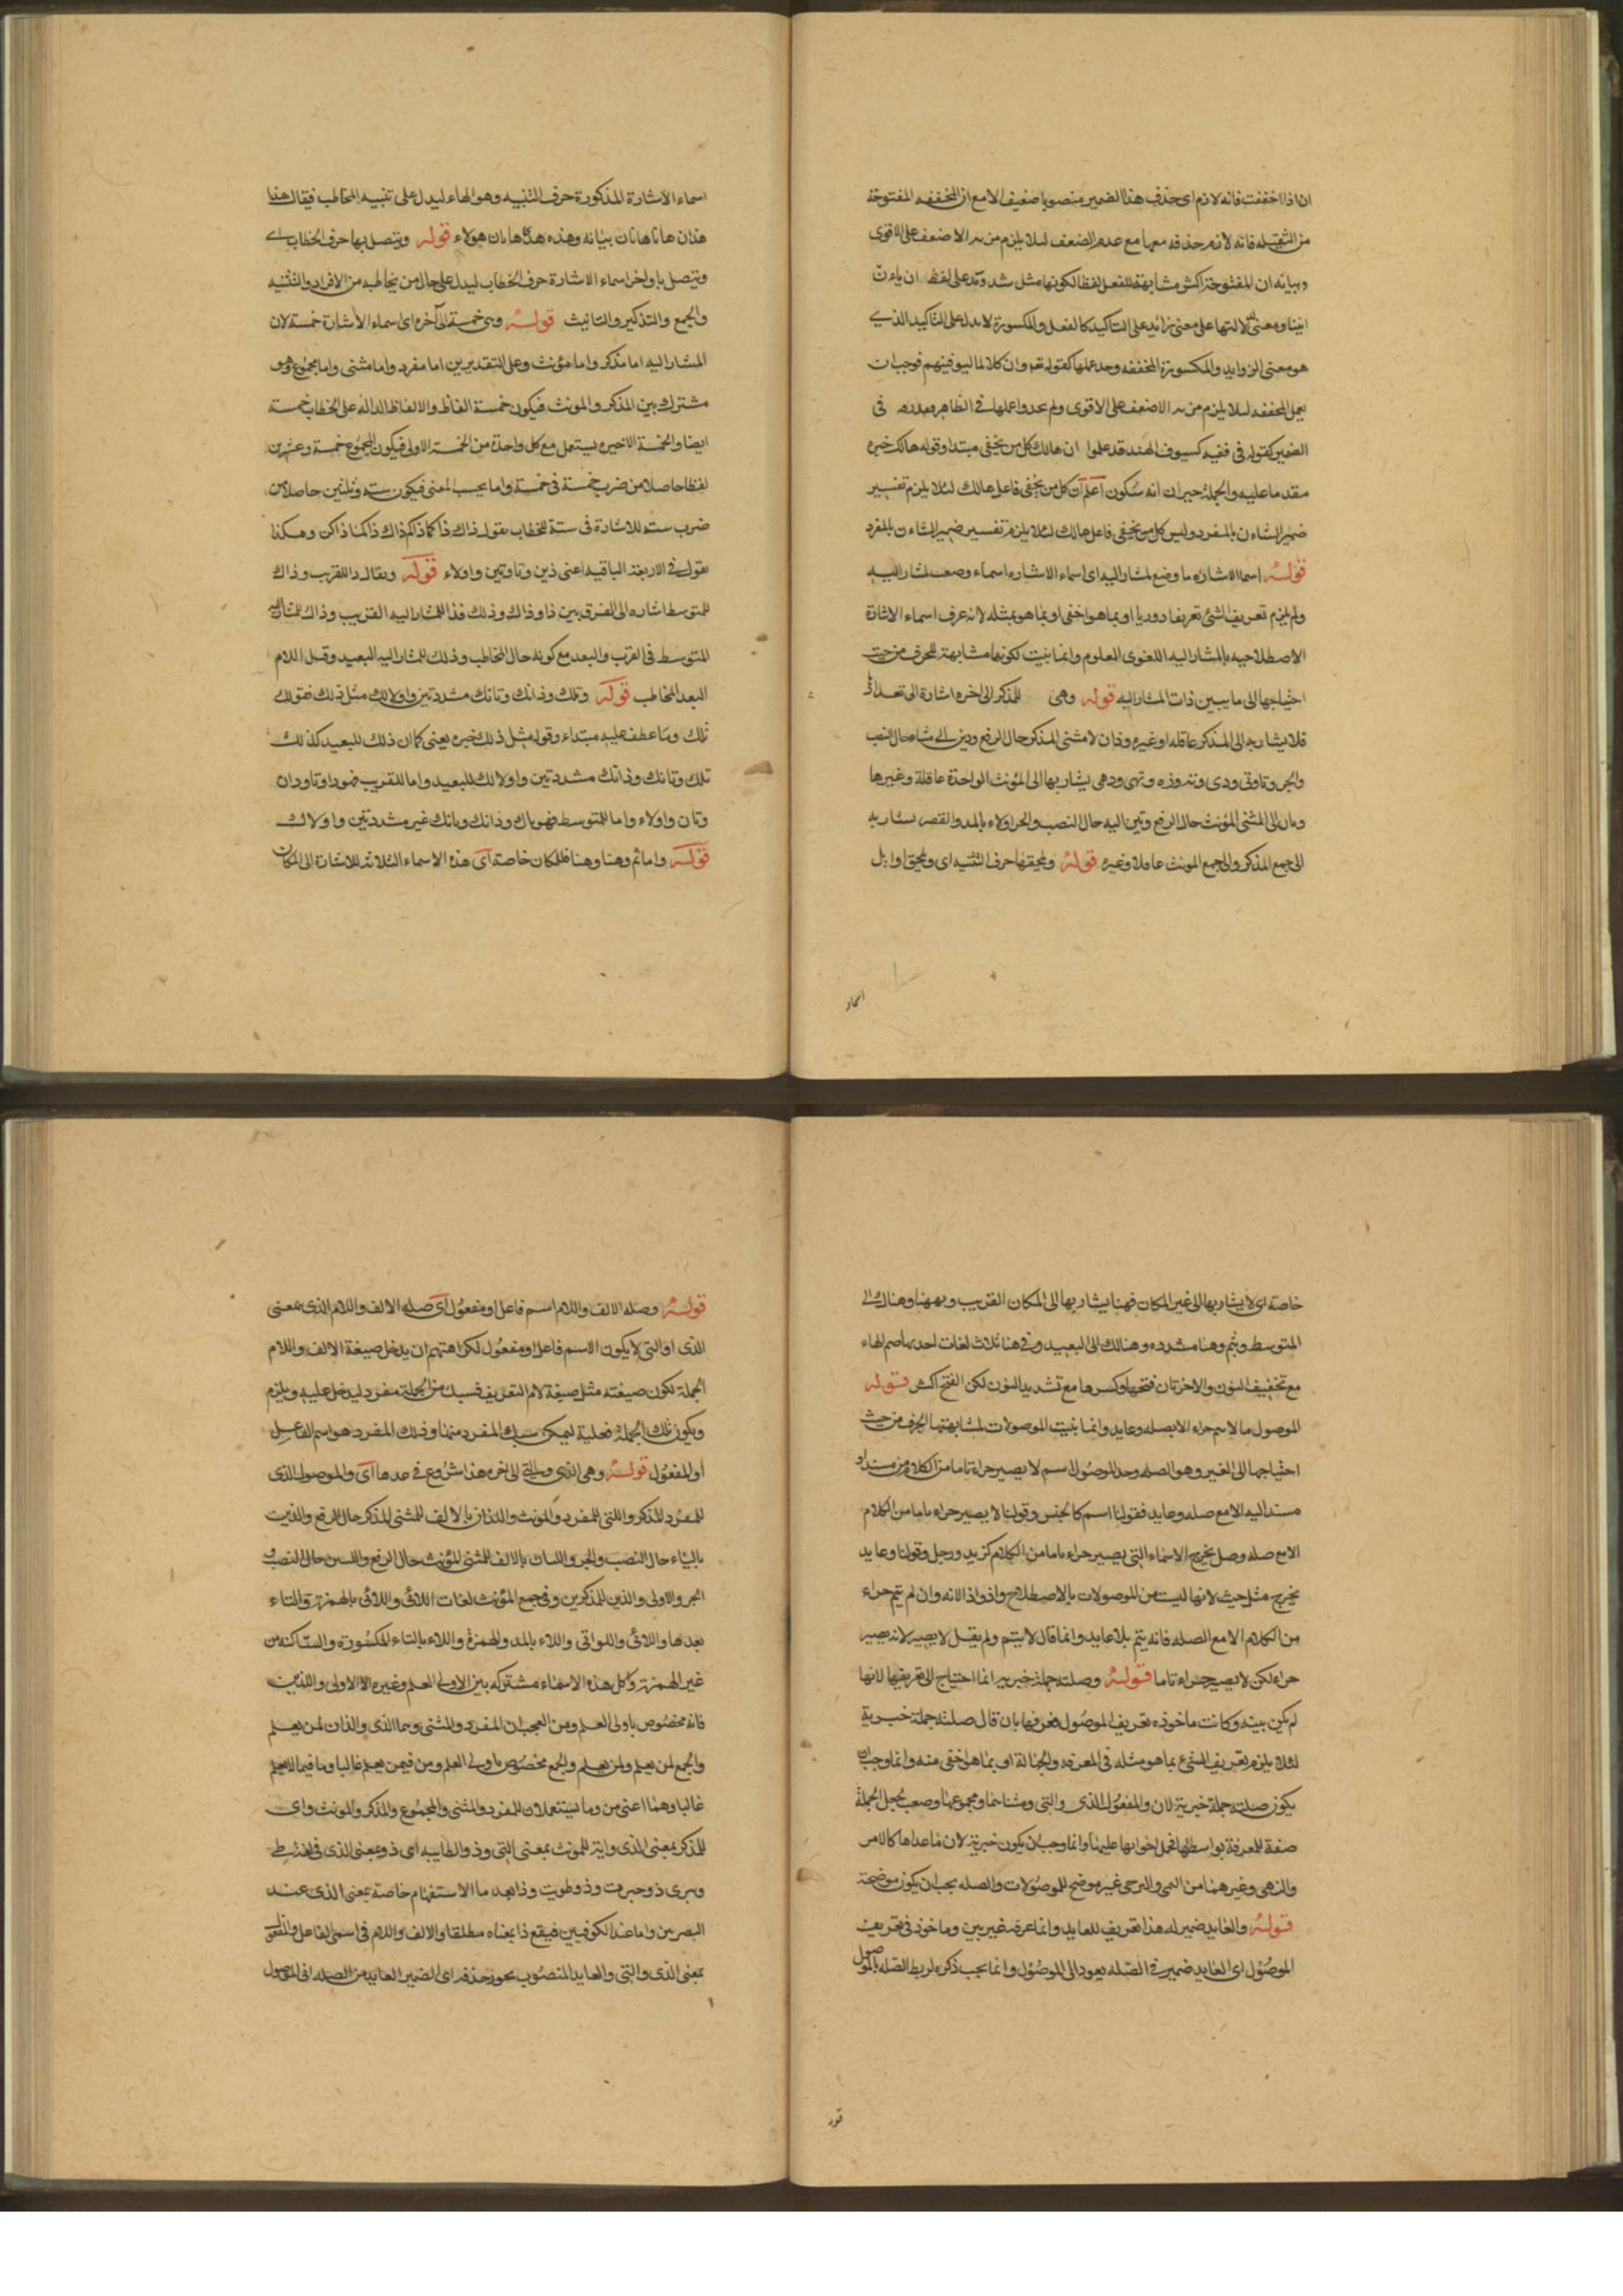 ان اذا خففت فانه لازم اى حذف هذا الضمير منصوبا ضعيف الامع ان المخففه المفتوحة
من الثقيله فانه لازم حذفه معها مع عدم الضعف لئلا يلزم من الاضعف على الاقوى
وبيانه ان المفتوحة اكثر مشابهة للفعل لفظا لكونها مثل شد ومد على لفظ ان ياءن
اينا ومعنى لدلالتها على معنى زائد على التاكيد كالفعل والمكسورة لا يدل على التاكيد الذى
هو معنى الزوايد والمكسورة المخففه وجد عملها كقوله تع وان كلا لما ليوفينهم فوجب ان
يعمل المخففه لئلا يلزم من الاضعف على الاقوى ولم يجدوا عملها فى الظاهر فى
الضمير كقوله فى فتيه كسيوف الهند قد علموا ان هالك كل من يخفى مبتدا وقوله هالك خبره
مقدما عليه والجملة خبر ان انه سكون اعلم ان كل من يخفى فاعل هالك لئلا يلزم تفسير
ضمير الشاءن بالمفرد وليس كل من يخفى فاعل هالك لئلا يلزم تفسير ضمير الشاءن بالمفرد
قوله اسما الاشاره ما وضع لمشار اليه اى اسماء الاشاره اسماء وضعت لمشار اليه
ولم يلزم تعريف الشئ تعريفا دوريا او بما هو اخفى او بما هو بمثله لانه عرف اسماء الاشارة
الاصطلاحيه بالمشار اليه اللغوى المعلوم وانما بنيت لكونها مشابهة للحرف من حيث
احتياجها الى ما يبين ذات المشار اليه قوله وهى للمذكر الى اخره اشارة الى تعداد
فلا يشار به الى المذكر عاقلا او غيره وذان لا مثنى المذكر حال الرفع وذين الى مثناه حال النصب
والجر وتا وتى وذى وته وذه وتهى وذهى يشار بها الى المؤنث الواحدة عاقلة وغيرها
وتان الى المثنى المؤنث حال الرفع وتين اليه حال النصب والجر اولاء بالمد والقصر يشار به
الى جمع المذكر والى جمع المونث عاقلا وغيره قوله ويلحقها حرف التنبيه اى ويلحق اوايل
اسماء
اسماء الاشارة المذكورة حرف التنبيه وهو الهاء ليدل على تنبيه المخاطب فيقال هذا
هذان هاتا هاتان بيانه وهذه هاتان هولاء قوله ويتصل بها حرف الخطاب اى
ويتصل باواخر اسماء الاشارة حرف الخطاب ليدل على حال من يخاطبه من الافراد والتثنيه
والجمع والتذكير والتانيث قوله وهى خمسة الى آخره اى اسماء الاشارة خمسة لان
المشار اليه اما مذكر واما مؤنث وعلى التقديرين اما مفرد واما مثنى واما مجموع وهو
مشترك بين المذكر والمونث فيكون خمسة الفاظ والالفاظ الداله على الخطاب خمسة
ايضا والخمسة الاخيره يستعمل مع كل واحدة من الخمسة الاولى فيكون المجموع خمسة وعشرين
لفظا حاصلا من ضرب خمسة فى خمسة واما بحسب المعنى فيكون ستة وثلثين حاصلا من
ضرب سته للاشارة فى ستة للخطاب تقول ذاك ذا كما ذاكم ذاك ذاكما ذاكن وهكذا
تقول فى الاربعة الباقيه اعنى ذين وتا وتين واولاء قوله ويقال ذا للقريب وذاك
للمتوسط اشاره الى الفرق بين ذا وذاك وذلك فذا للمشار اليه القريب وذاك للمشار اليه
المتوسط فى القرب والبعد مع كونه حال المخاطب وذلك للمشار اليه البعيد وقيل اللام
البعد المخاطب قوله وتلك وذانك وتانك مشددتين واولالك مثل ذلك فقوله
تلك وما عطف عليه مبتداء وقوله مثل ذلك خبره يعنى كما ان ذلك للبعيد كذلك
تلك وتانك وذانك مشددتين واولالك للبعيد واما للقريب فهو ذا وتا وذان
وتان واولاء واما للمتوسط فهو ذاك وذانك وتانك غير مشددتين واولاك
قوله واما ثم وهنا وهنا فللمكان خاصة اى هذه الاسماء الثلاثة للاشارة الى المكان
خاصة اى لا يشار بها الى غير المكان فهنا يشار بها الى المكان القريب وبههنا وهناك الى
المتوسط وبثم وهنا مشدده وهنالك الى البعيد وفى هنا ثلاث لغات احدها ضم الهاء
مع تخفيف النون والاخرتان فتحها وكسرها مع تشديد النون لكن الفتح اكثر قوله
الموصول ما لا يتم جزاء الا بصله وعايد وانما بنيت الموصولات لمشابهتها الحرف من حيث
احتياجها الى الغير وهو الصله وحد الموصول اسم لا يصير جزاء تاما من الكلام من مسند او
مسند اليه الا مع صله وعايد فقولنا اسم كالجنس وقولنا لا يصير جزاء تاما من الكلام
الا مع صله وصل يخرج الاسماء التى يصير جزاء تاما من الكلام كزيد ورجل وقولنا وعايد
يخرج مثل حيث لانها ليست من الموصولات بالاصطلاح واذ واذا لانه وان لم يتم جزاء
من الكلام الا مع الصله فانه يتم بلا عايد وانما قال لا يتم ولم يقل لا يصير لانه يصير
جزاء لكن لا يصير جزاء تاما قوله وصلته جملة خبريه انما احتياج الى تعريفها لانها
لم يكن بينه وكانت ماخوذه تعريف الموصول فعرفها بان قال صلته جملة خبرية
لئلا يلزم تعريف الشئ بما هو مثله فى المعرفه والجهالة او بما هو اخفى منه وانما وجب ان
يكون صلته جملة خبرية لان والمفعول الذى والتى ومثناهما ومجموعها وضعت لجعل الجملة
صفة للمعرفة بواسطتها فحمل اخواتها عليها وانما وجب ان يكون خبرية لان ما عداها كالامر
والنهى وغيرهما من التمنى والترجى غير موضح للموصولات والصله يجب ان يكون موضحة
قوله والعايد ضمير له هذا تعريف للعايد وانما عرفه غير بين وماخوذ فى تعريف
الموصول اى العايد ضمير فى الصله يعود الى الموصول وانما يجب ذكره لربط الصله بالموصول
قوله
قوله وصله الالف واللام اسم فاعل او مفعول اى صله الالف واللام الذى بمعنى
الذى او التى لا يكون الا اسم فاعل او مفعول لكراهتهم ان يدخل صيغة الالف واللام
الجملة لكون صيغته مثل صيغة لام التعريف فسبك من الجملة مفرد ليدخل عليه ويلزم
ويكون تلك الجملة فعلية ليمكن سبك المفرد منها وذلك المفرد هو اسم الفاعل
او المفعول قوله وهى الذى والتى الى اخره هذا شروع فى عدها اى والموصول الذى
للمفرد المذكر واللتى للمفرد والمونث واللذان بالالف للمثنى المذكر حال الرفع والذين
بالياء حال النصب والجر واللتان بالالف للمثنى المؤنث حال الرفع واللتين حال النصب و
الجر والاولى والذين للمذكرين وفى جمع المؤنث لغات اللائى واللاتى بالهمزة والتاء
بعدها واللائى واللواتى واللاء بالمد والهمزة واللاء بالتاء المكسورة والساكنه من
غير الهمزة وكل هذه الاسماء مشتركه بين الاولى العلم وغيره الا الاولى والذين
فانه مخصوص باولى العلم ومن العجب ان المفرد والمثنى وهما الذى والذان لمن يعلم
والجمع لمن يعلم ولمن يعلم والجمع مخصوص باولى العلم ومن فيمن يعلم غالبا وما فيما لا يعلم
غالبا وهما اعنى من وما يستعملان للمفرد والمثنى والمجموع والمذكر والمونث واى
للمذكر بمعنى الذى واية للمونث بمعنى التى وذو الطايية اى ذو بمعنى الذى فى لغة طى
وبيرى ذو حفرت وذو طويت وذا بعد ما الاستفهام خاصة بمعنى الذى عند
البصرين واما عند الكوفيين فيقع ذا بمعناه مطلقا والالف واللام فى اسمى الفاعل والمفعول
بمعنى الذى والتى والعايد المنصوب يجوز حذفه اى الضمير العايد من الصله الى الموصول